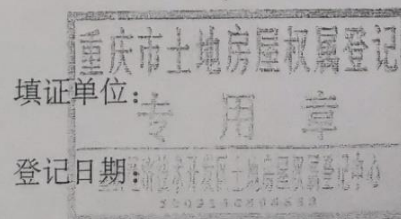 重庆市土地房屋权属登记
填证单位:
专用章
登记日期:
技术开发区土地房屋权属登记中心